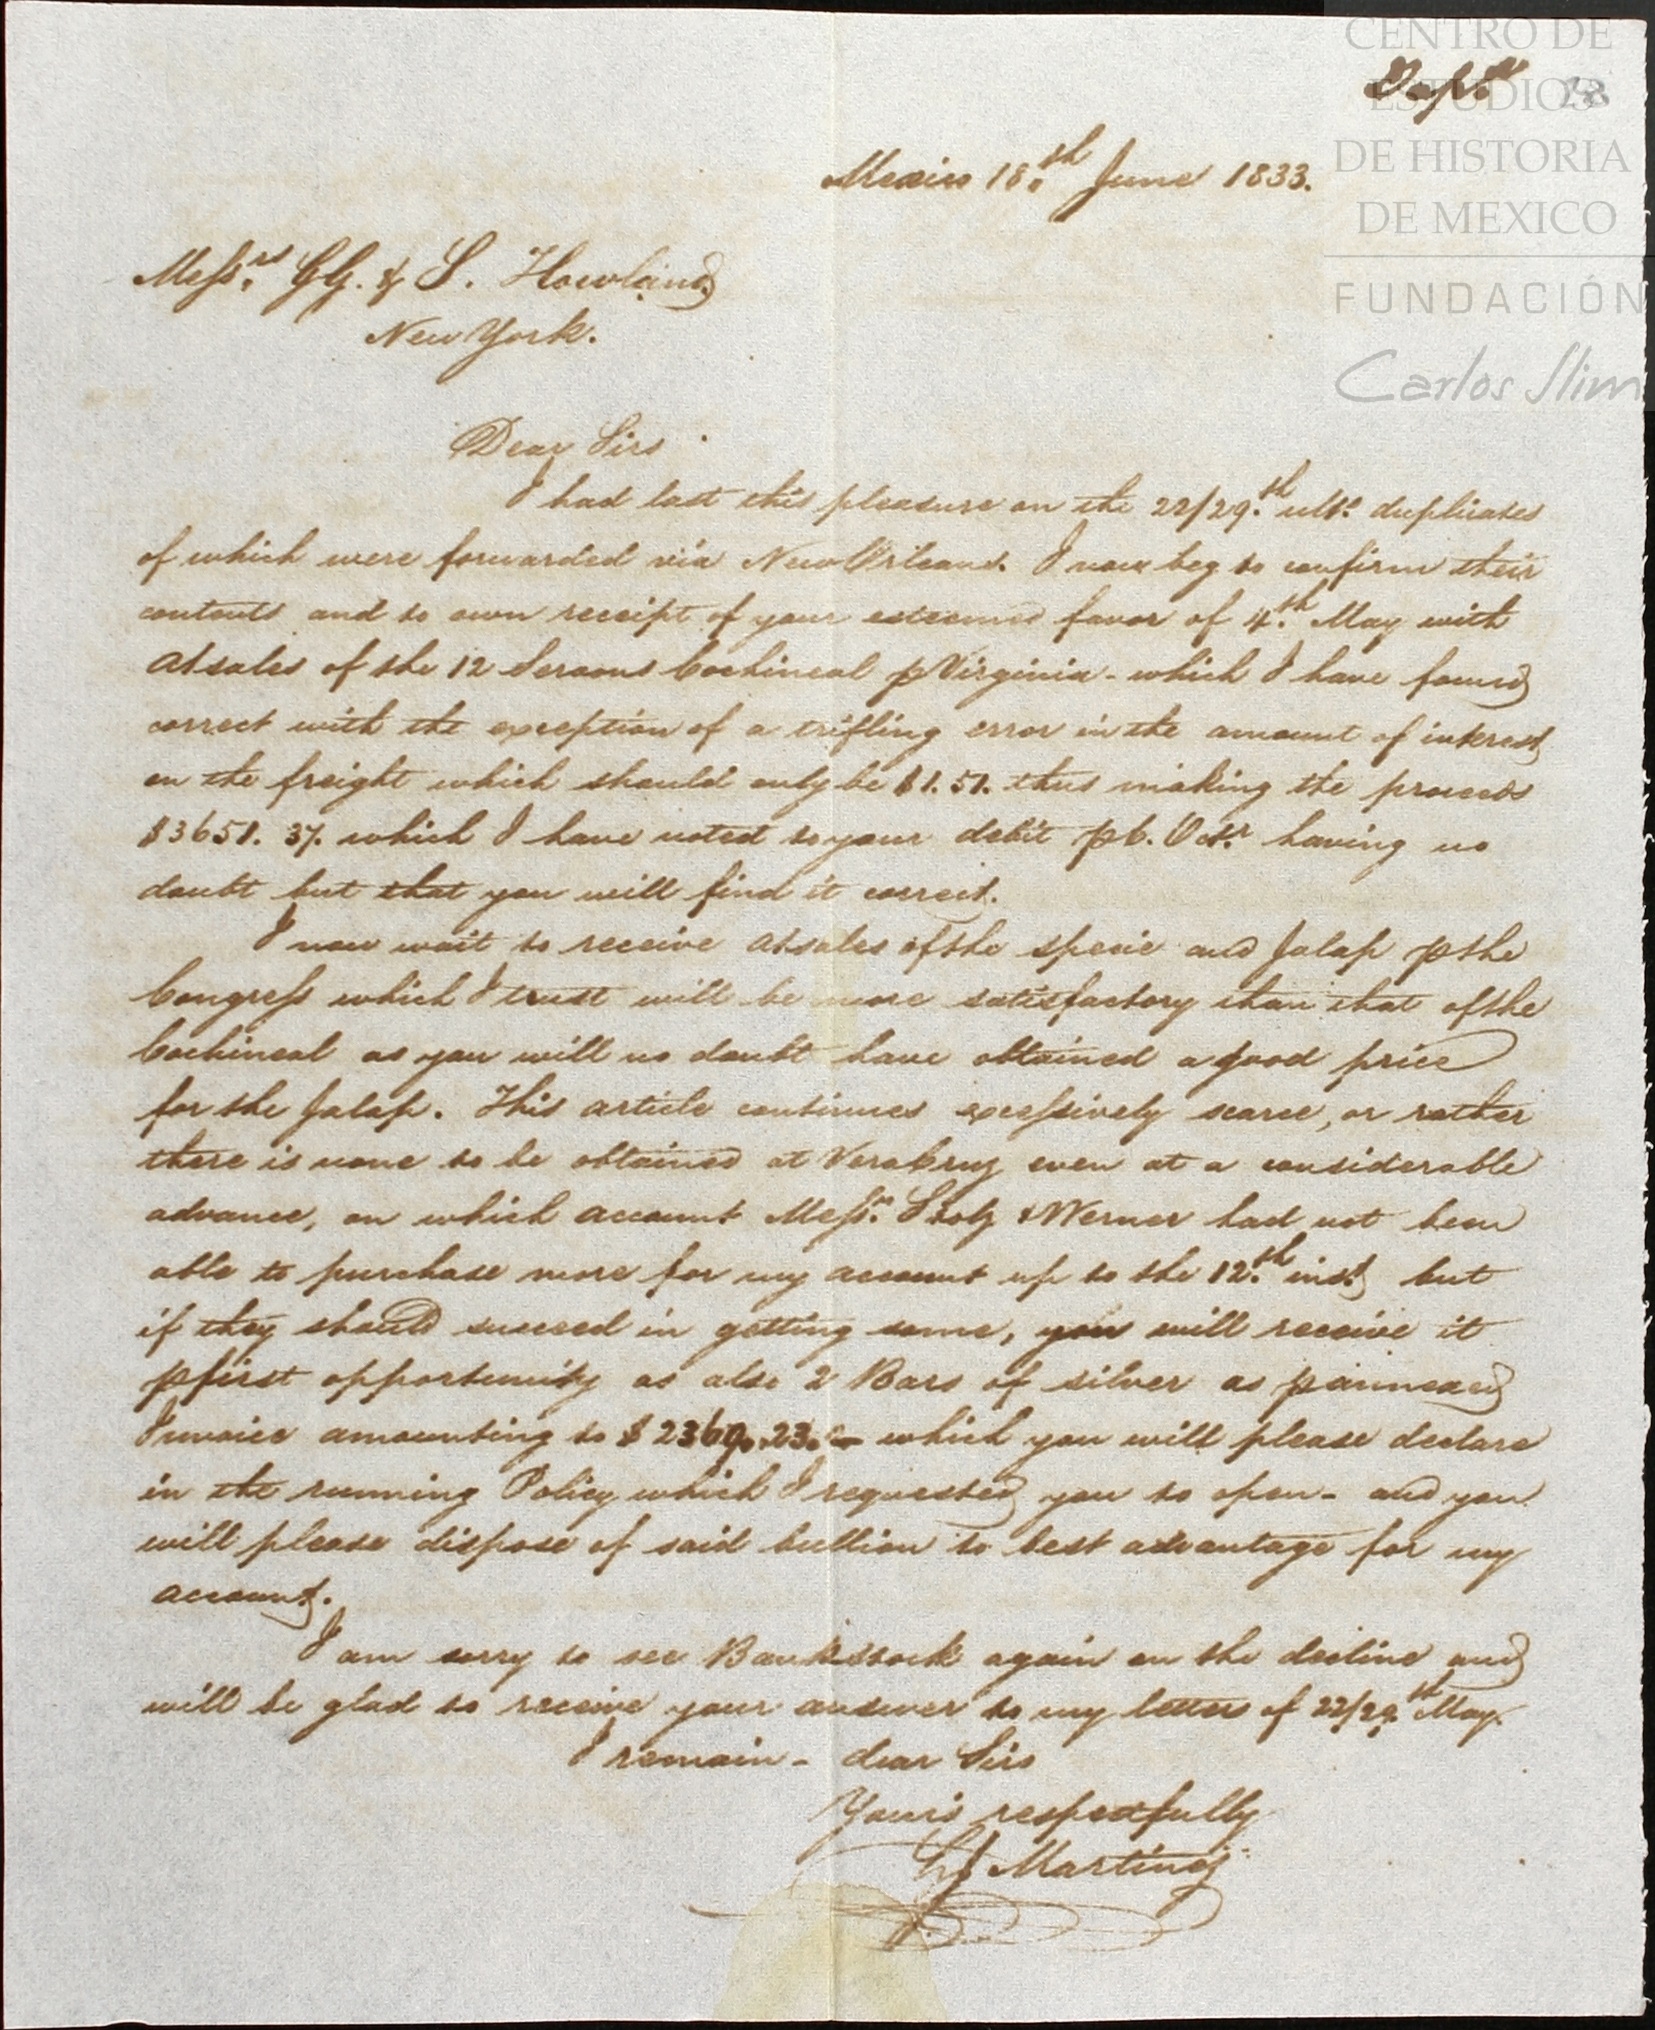 CENTRO DE
ESTUDIOS
DE HISTORIA
DE MEXICO
FUNDACIÓN
Carlos Slim
Mexico 18.th June 1833.
Messrs. GG. & S. Howland
New York.
Dear Sirs
I had last this pleasure on the 22/29.th ulto. duplicates
of which were forwarded viá New Orleans. I now beg to confirm their
contents and to own receipt of your esteemed favor of 4.th May with
A/sales of the 12 Seroons Cochineal p Virginia - which I have found
correct with the exception of a trifling error in the amount of interest
on the freight which should only be $1.51. thus making the proceeds
$3651.37. which I have noted to your debit p 6. Octr. having no
doubt but that you will find it correct.
I now wait to receive A/sales of the specie and Jalap p the
Congress which I trust will be more satisfactory than that of the
Cochineal as you will no doubt have obtained a good price
for the Jalap. This article continues excessively scarce, or rather
there is none to be obtained at VeraCruz even at a considerable
advance, on which account Messrs. Stolz & Werner had not been
able to purchase more for my account up to the 12.th inst. but
if they should succeed in getting some, you will receive it
p first opportunity as also 2 Bars of silver as p annexed
Invoice amounting to $2369.,23. which you will please declare
in the running Policy which I requested you to open - and you
will please dispose of said bullion to best advantage for my
account.
I am sorry to see Bankstock again on the decline and
will be glad to receive your answer to my letters of 22/29.th May.
I remain - dear Sirs
Yours respectfully
Martinez